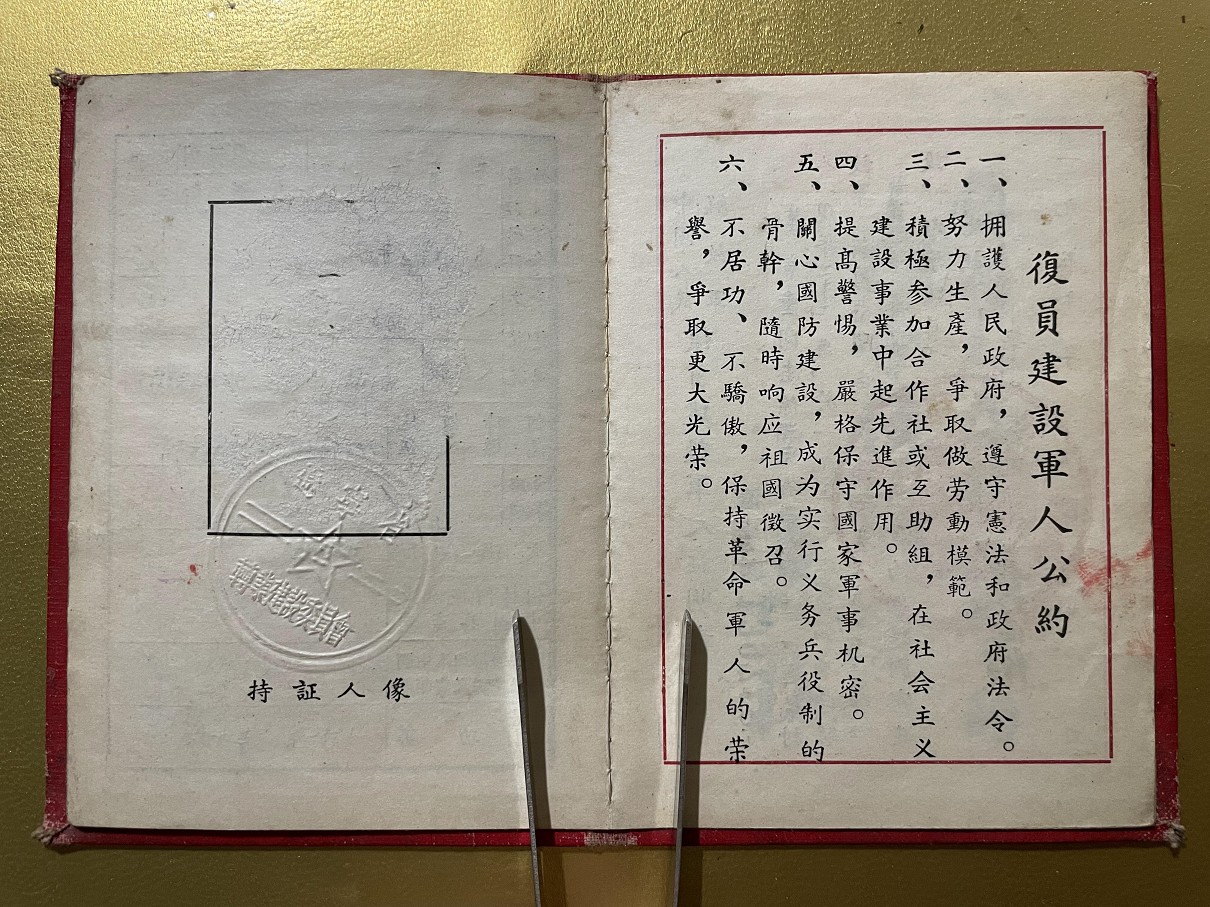 復員建設軍人公約
一、擁護人民政府，遵守憲法和政府法令。
二、努力生產，爭取做劳動模範。
三、積極参加合作社或互助組，在社会主义
建設事業中起先進作用。
四、提髙警惕，嚴格保守國家軍事机密。
五、關心國防建設，成为实行义务兵役制的
骨幹，隨時响应祖國徵召。
六、不居功、不驕傲，保持革命軍人的荣
譽，爭取更大光荣。
轉業建設委員會
持証人像